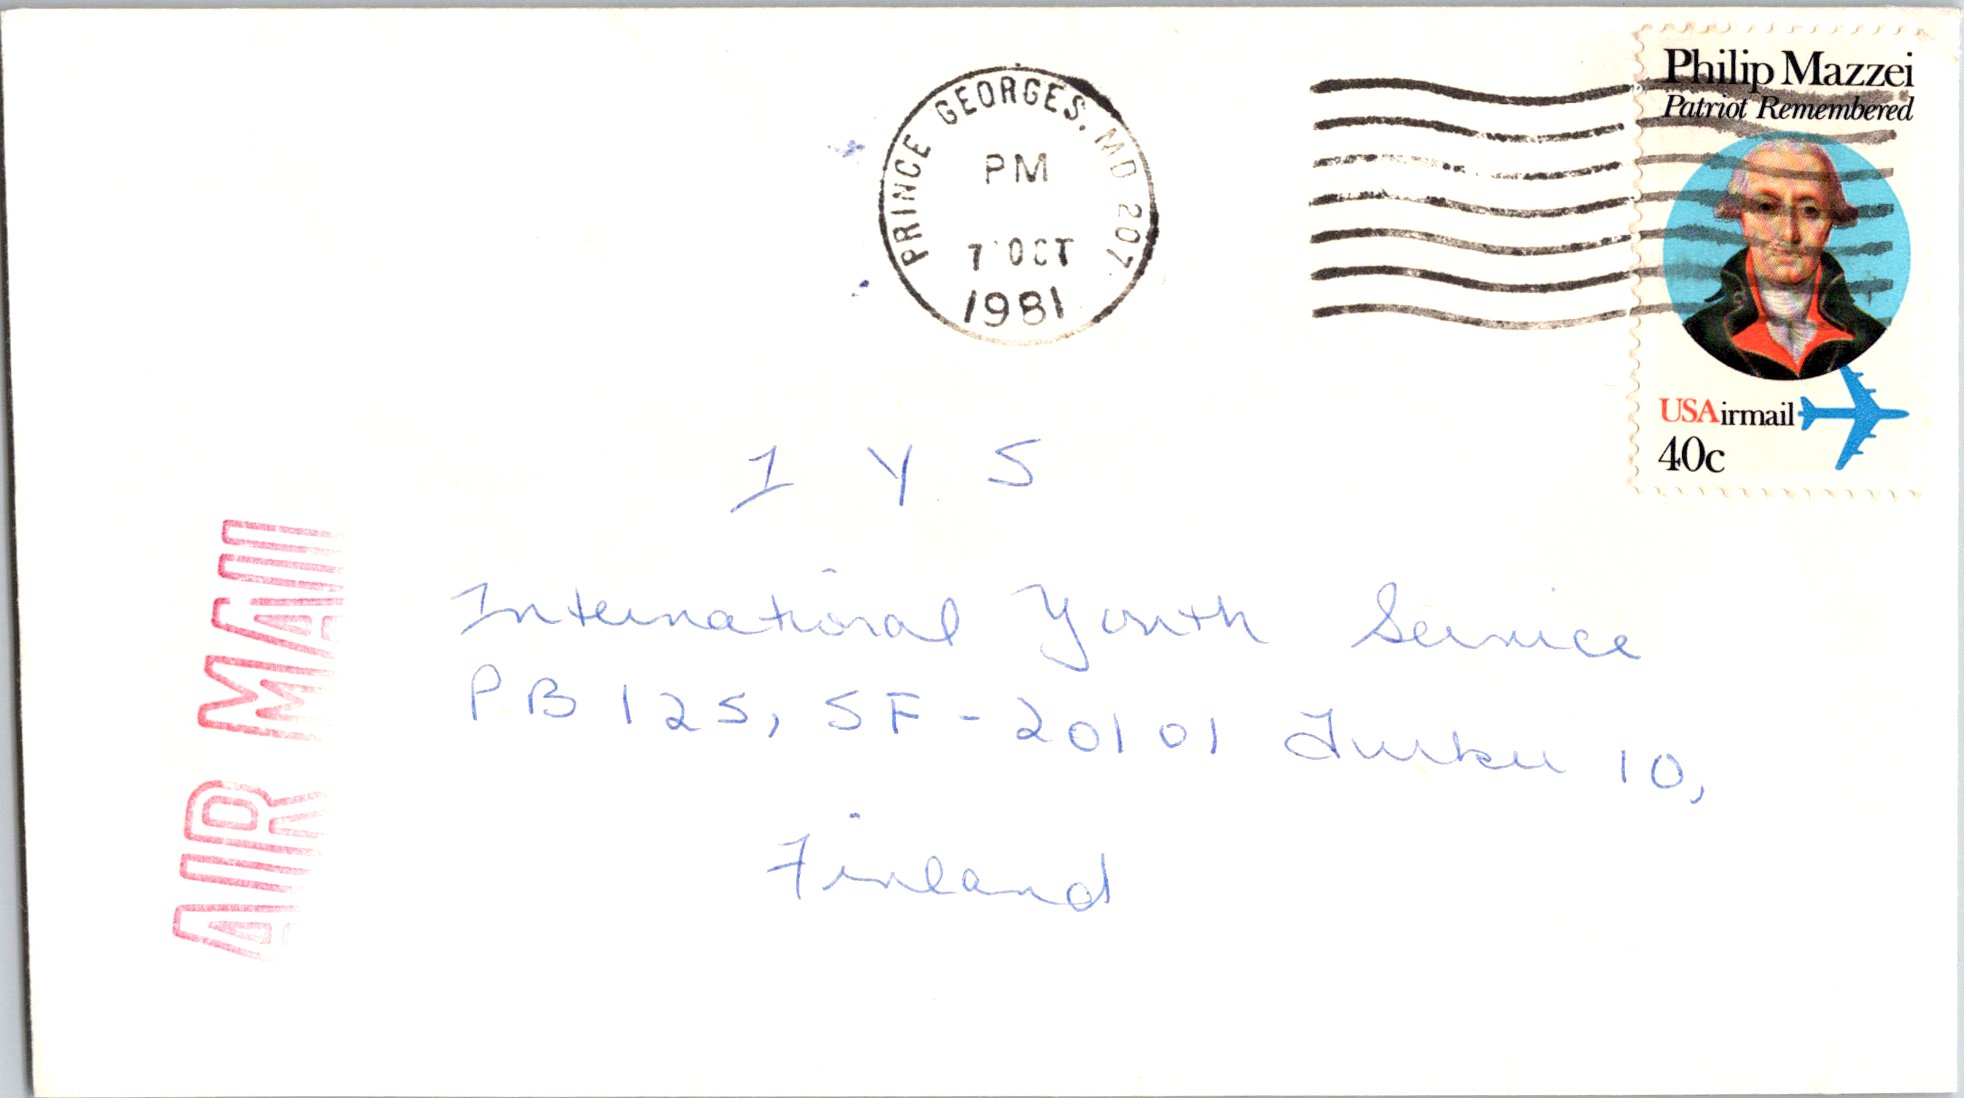 PRINCE GEORGES, MD 207
PM
7 OCT
1981
Philip Mazzei
Patriot Remembered
USAirmail
40c
AIR MAIL
I Y S
International Youth Service
PB 125, SF-20101 Turku 10,
Finland